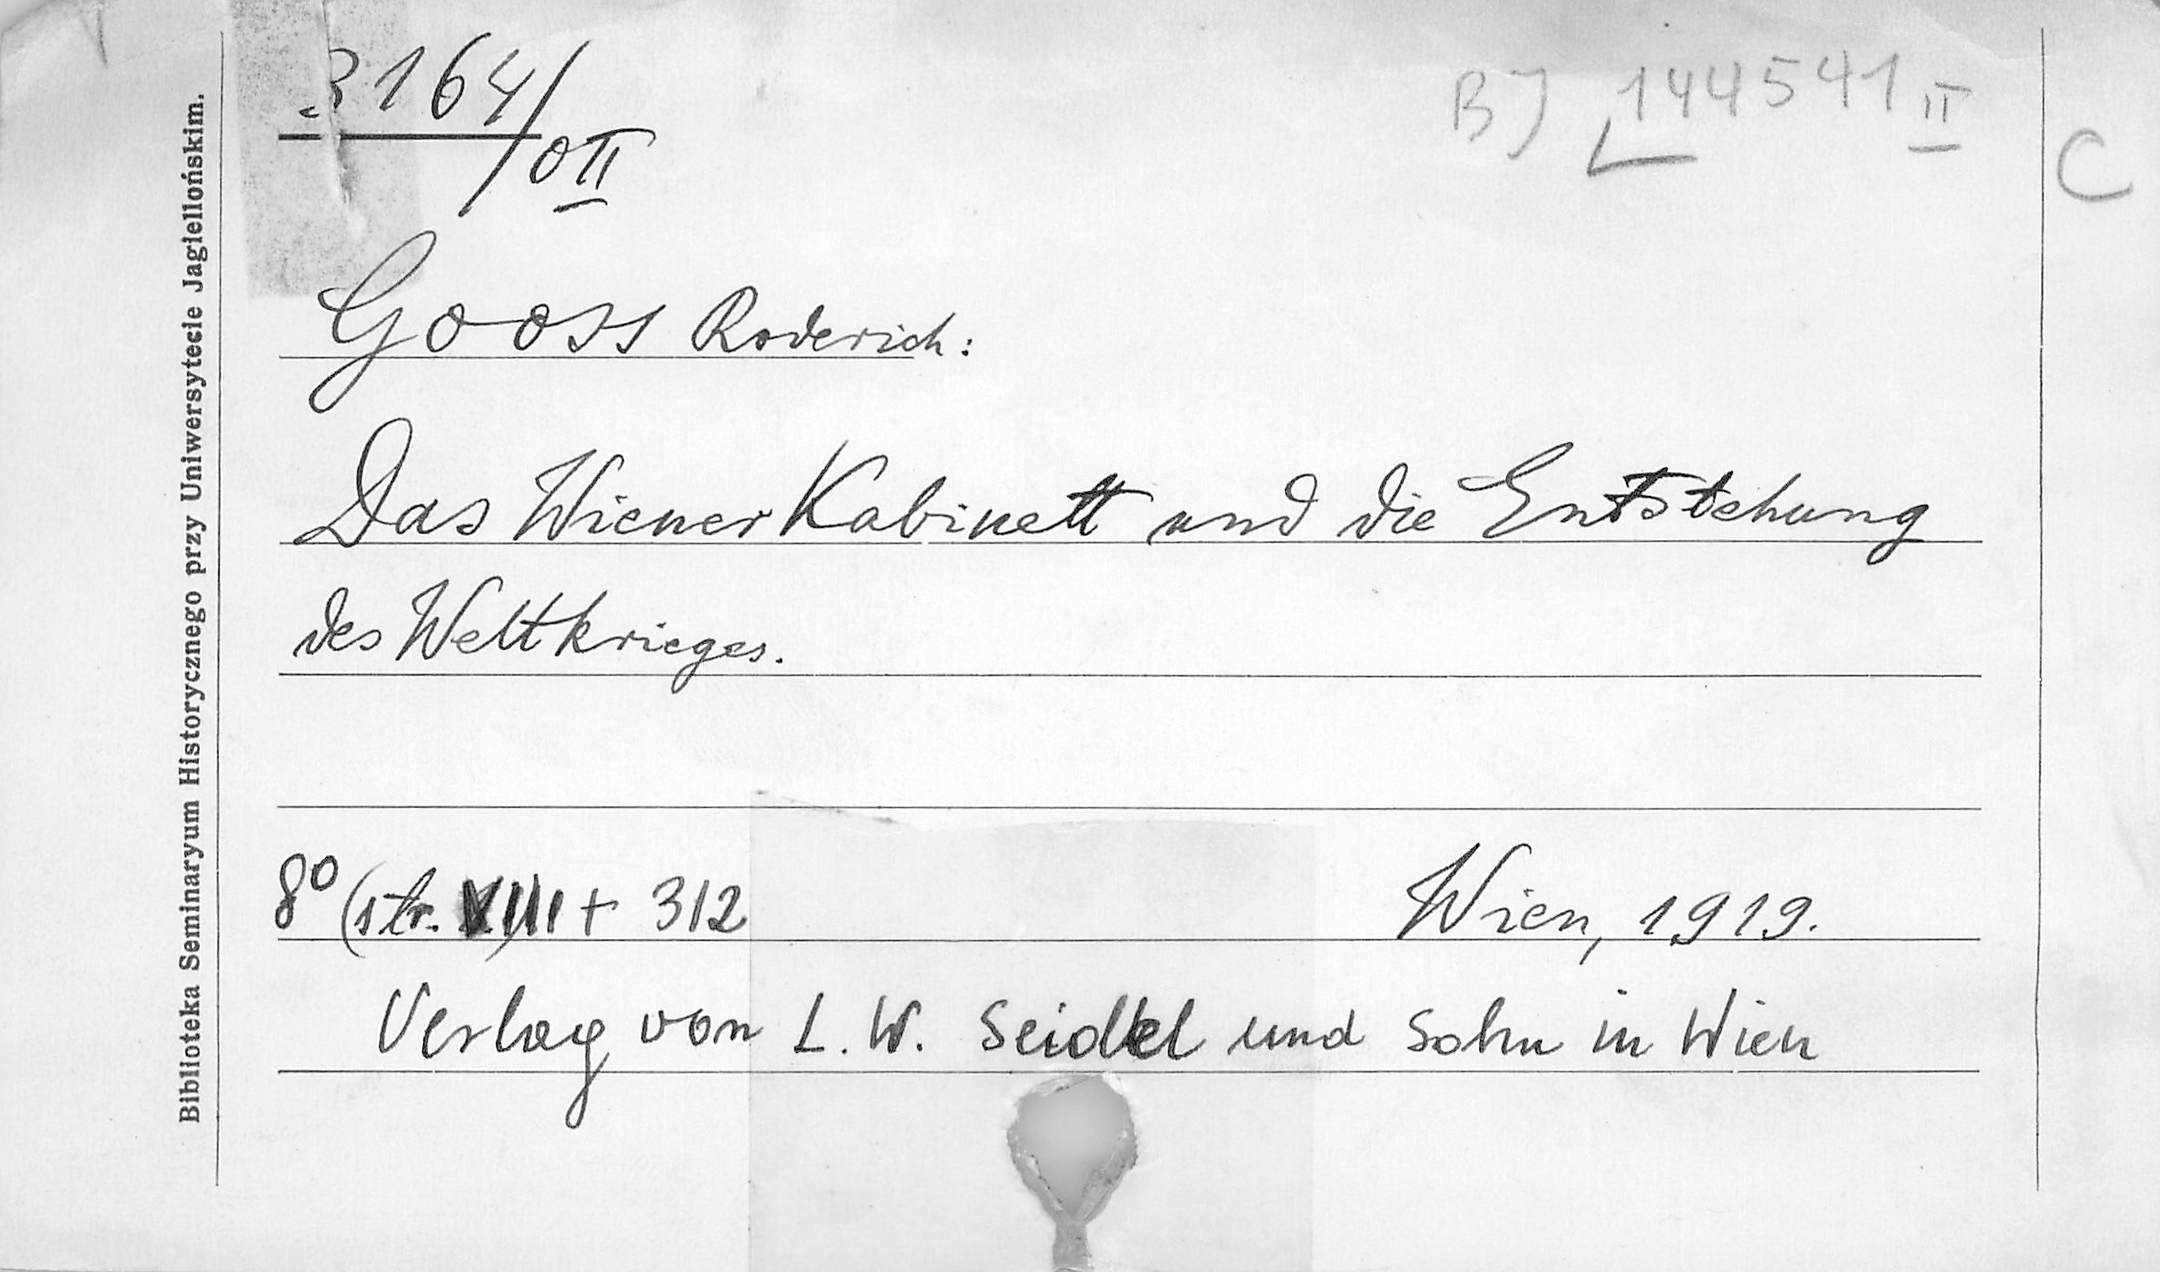 3164/0II
BJ 144541 II
C
Gooss Roderich:
Das Wiener Kabinett und die Entstehung
des Weltkrieges.
8⁰ (str. XIII + 312
Wien, 1919.
Verlag von L. W. Seidel und Sohn in Wien
Biblioteka Seminaryum Historycznego przy Uniwersytecie Jagiellońskim.